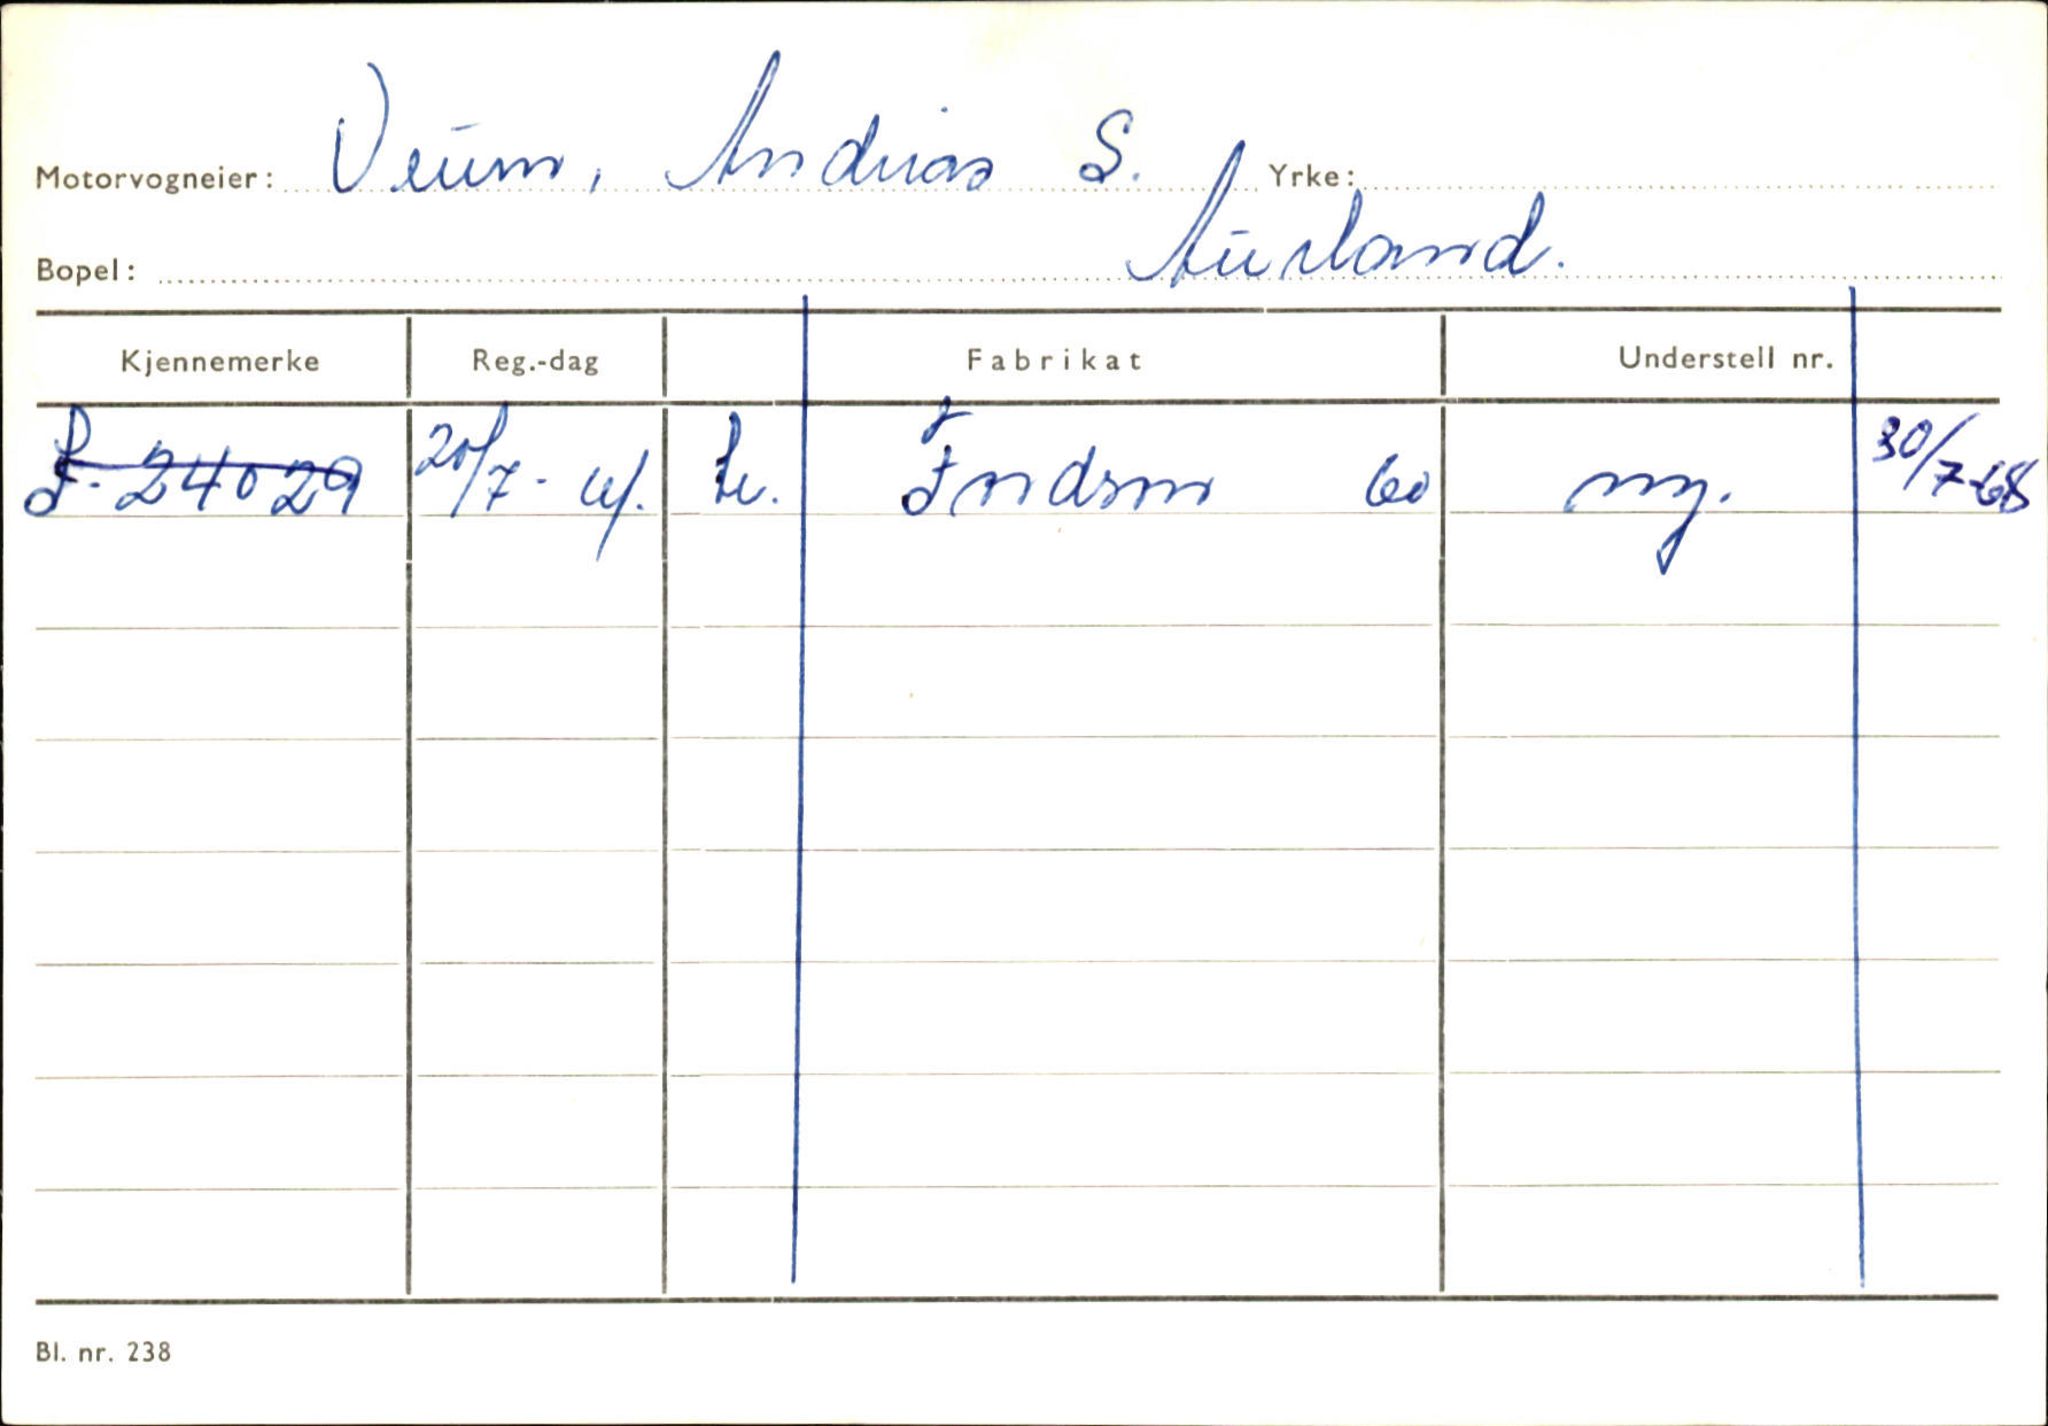 Motorvogneier: Veum, Andreas S. Yrke:
Bopel: Aurland.
Kjennemerke Reg.-dag Fabrikat Understell nr.
S-24029 20/7- 60 ny. 30/7-68
Bl. nr. 238